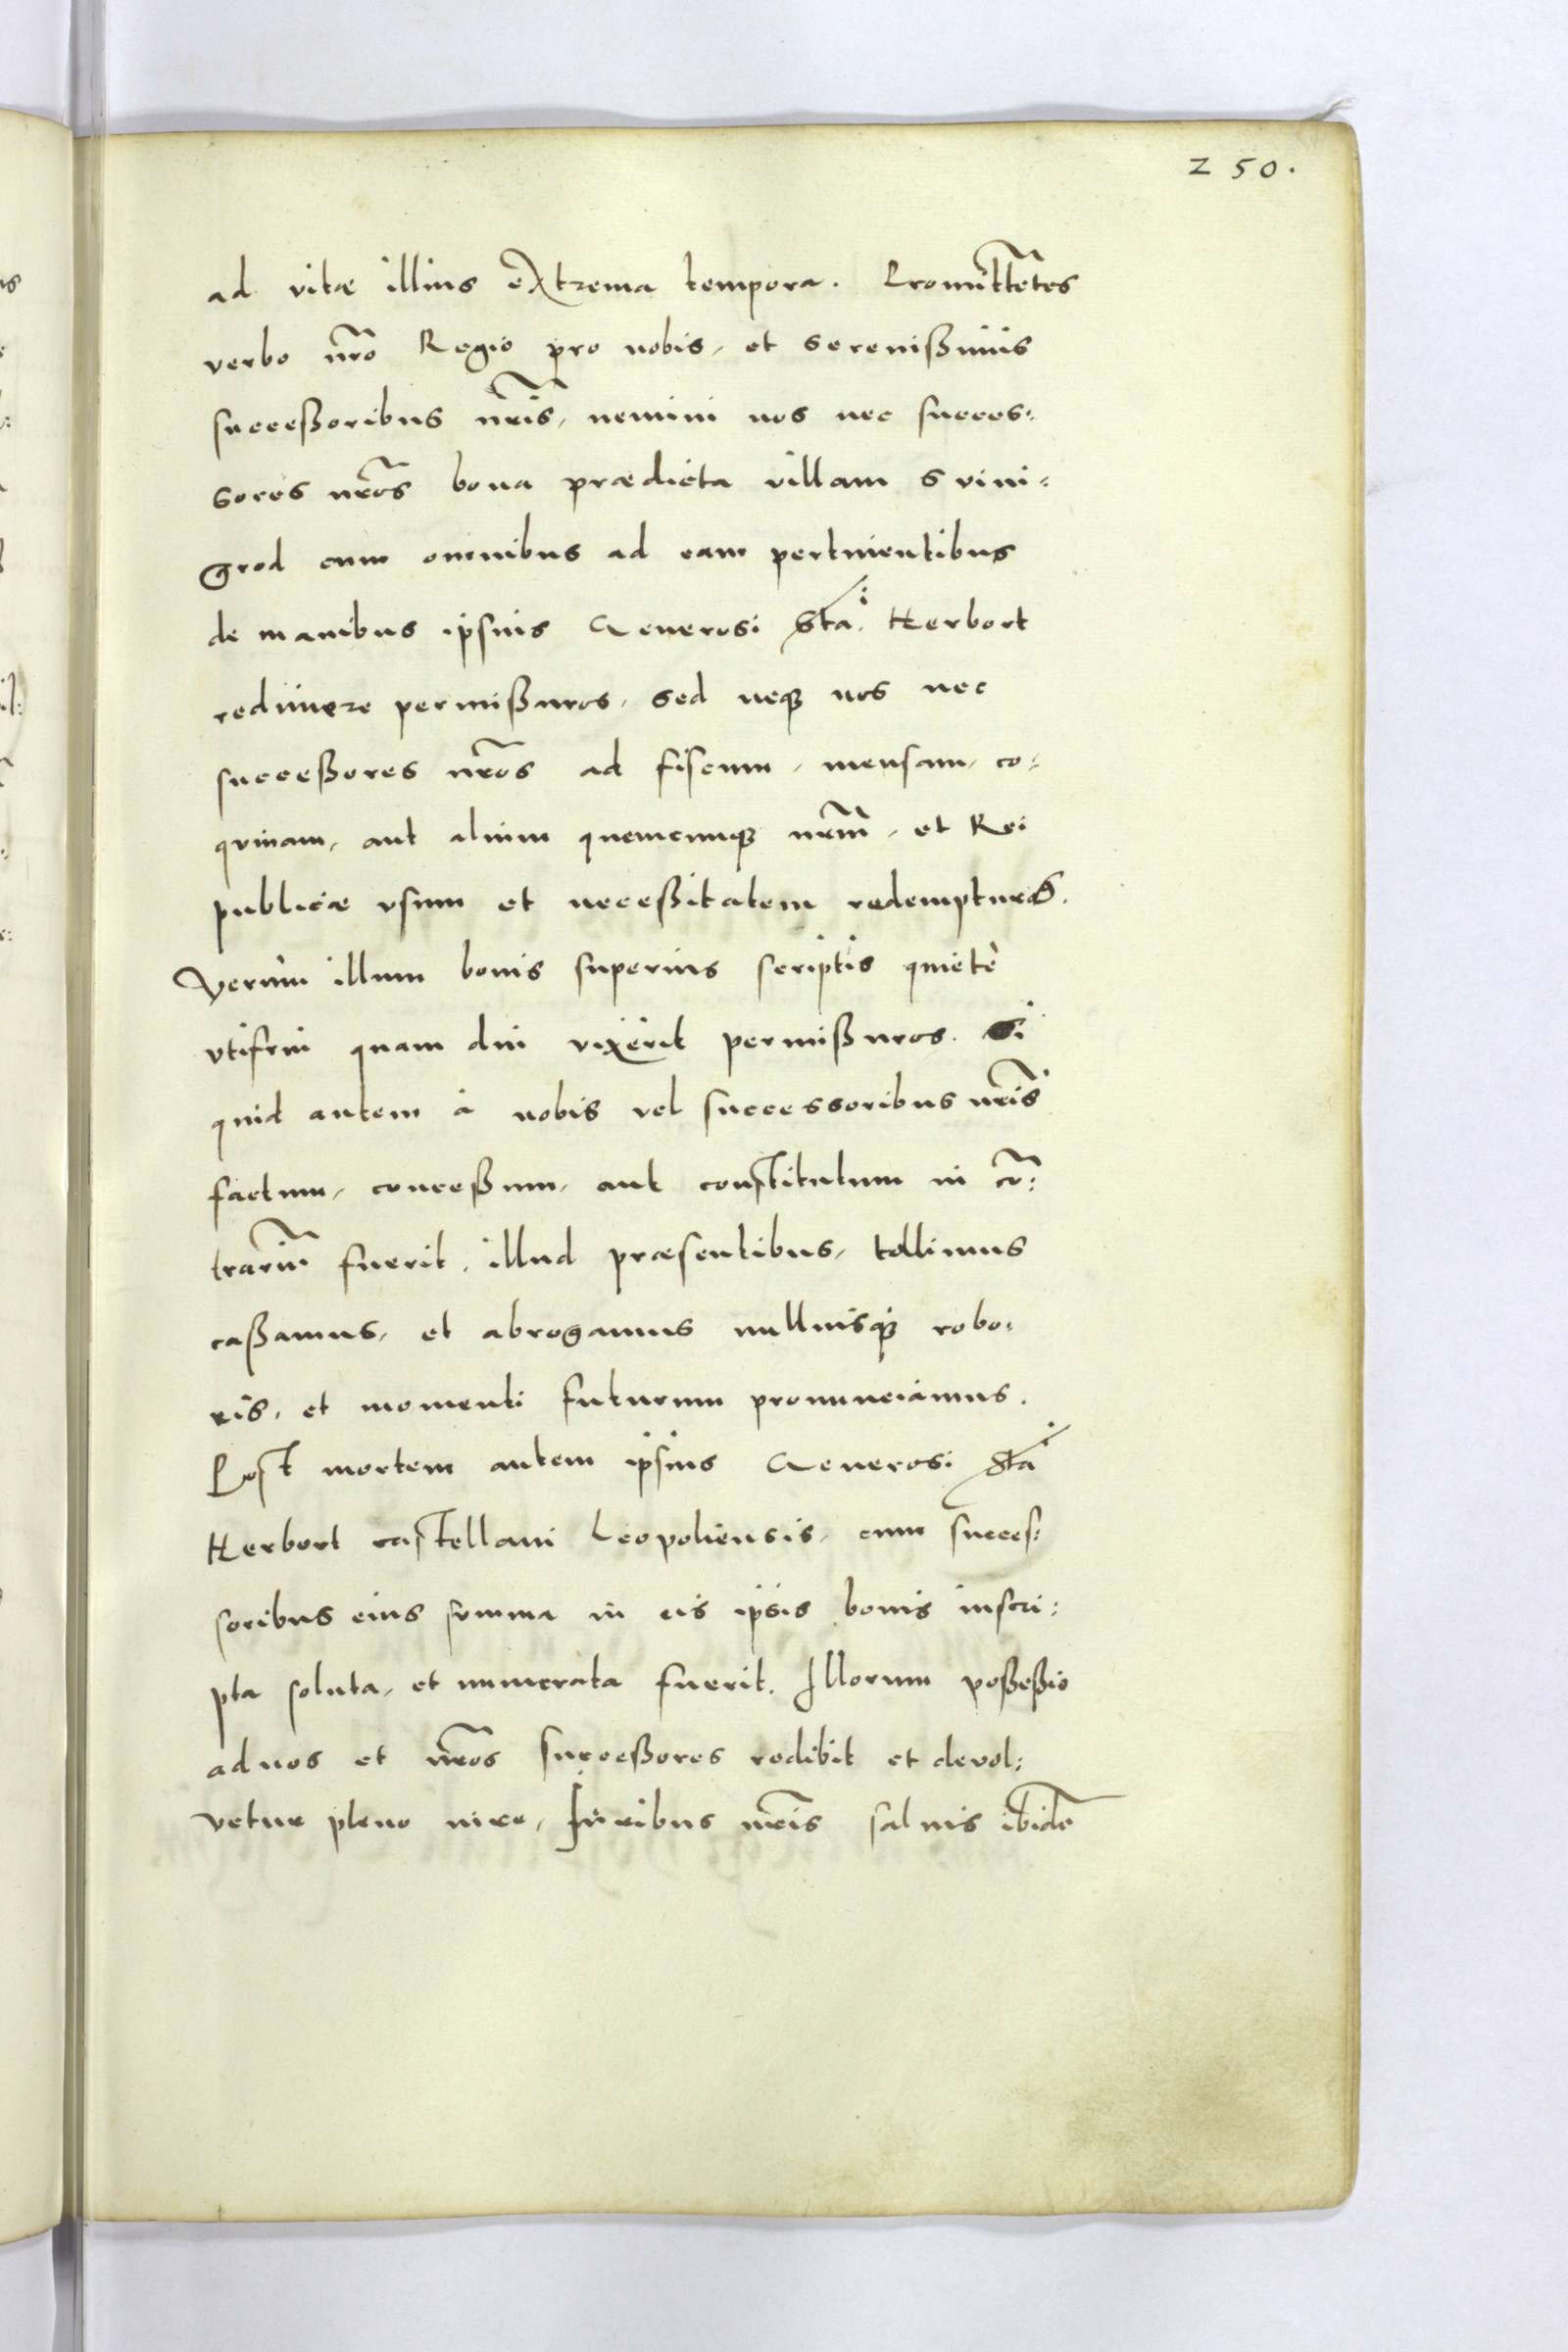 250.
ad vitæ illius extrema tempora. Promittẽtes
verbo nr̃o Regio pro nobis, et serenißimis
succeßoribus nr̃is, nemini nos nec succes:
sores nr̃os bona prædicta villam Svini:
grod cum omnibus ad eam pertinentibus
de manibus ipsius Generosi Sta: Herbort
redimere permißuros, sed neqꝫ nos nec
succeßores nr̃os ad fiscum, mensam, co:
quinam, aut alium quemcunqꝫ nr̃m, et Rei
publicæ vsum et neceßitatem redempturos.
Verum illum bonis superius scriptis quietè
vtifrui quam diu vixerit permißuros. Si
quid autem à nobis vel successoribus nr̃is
factum, conceßum, aut constitutum in cõ:
trariũ fuerit, illud præsentibus, tollimus
caßamus, et abrogamus nulliusqꝫ robo:
ris, et momenti futurum pronunciamus.
Post mortem autem ipsius Generosi Stai
Herbort castellani Leopoliensis, cum succes:
soribus eius summa in eis ipsis bonis inscri:
pta soluta, et numerata fuerit. Illorum poßeßio
ad nos et nr̃os succeßores redibit et devol:
vetur pleno iure, Iuribus nr̃is saluis ibidẽ